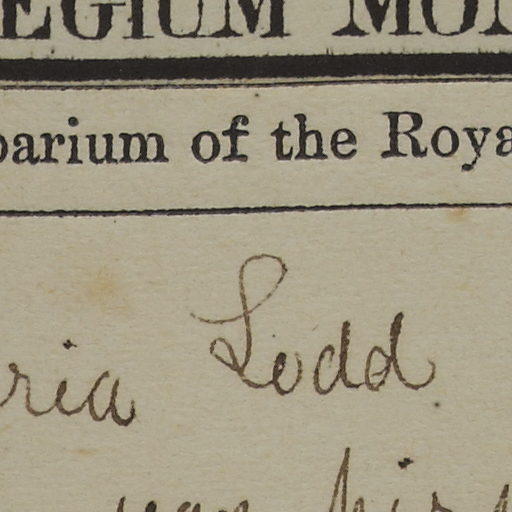 EGIUM MO
barium of the Roya
ria Lodd